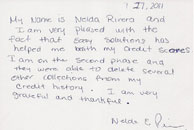 1.27, 2011
My Name is Nelda Rivera and
I am very pleased with the
fact that Easy Solutions has
helped me with my Credit Scores
I am on the Second phase and
they were able to delete several
other collections from my
credit history. I am very
grateful and thankful.
Nelda E.